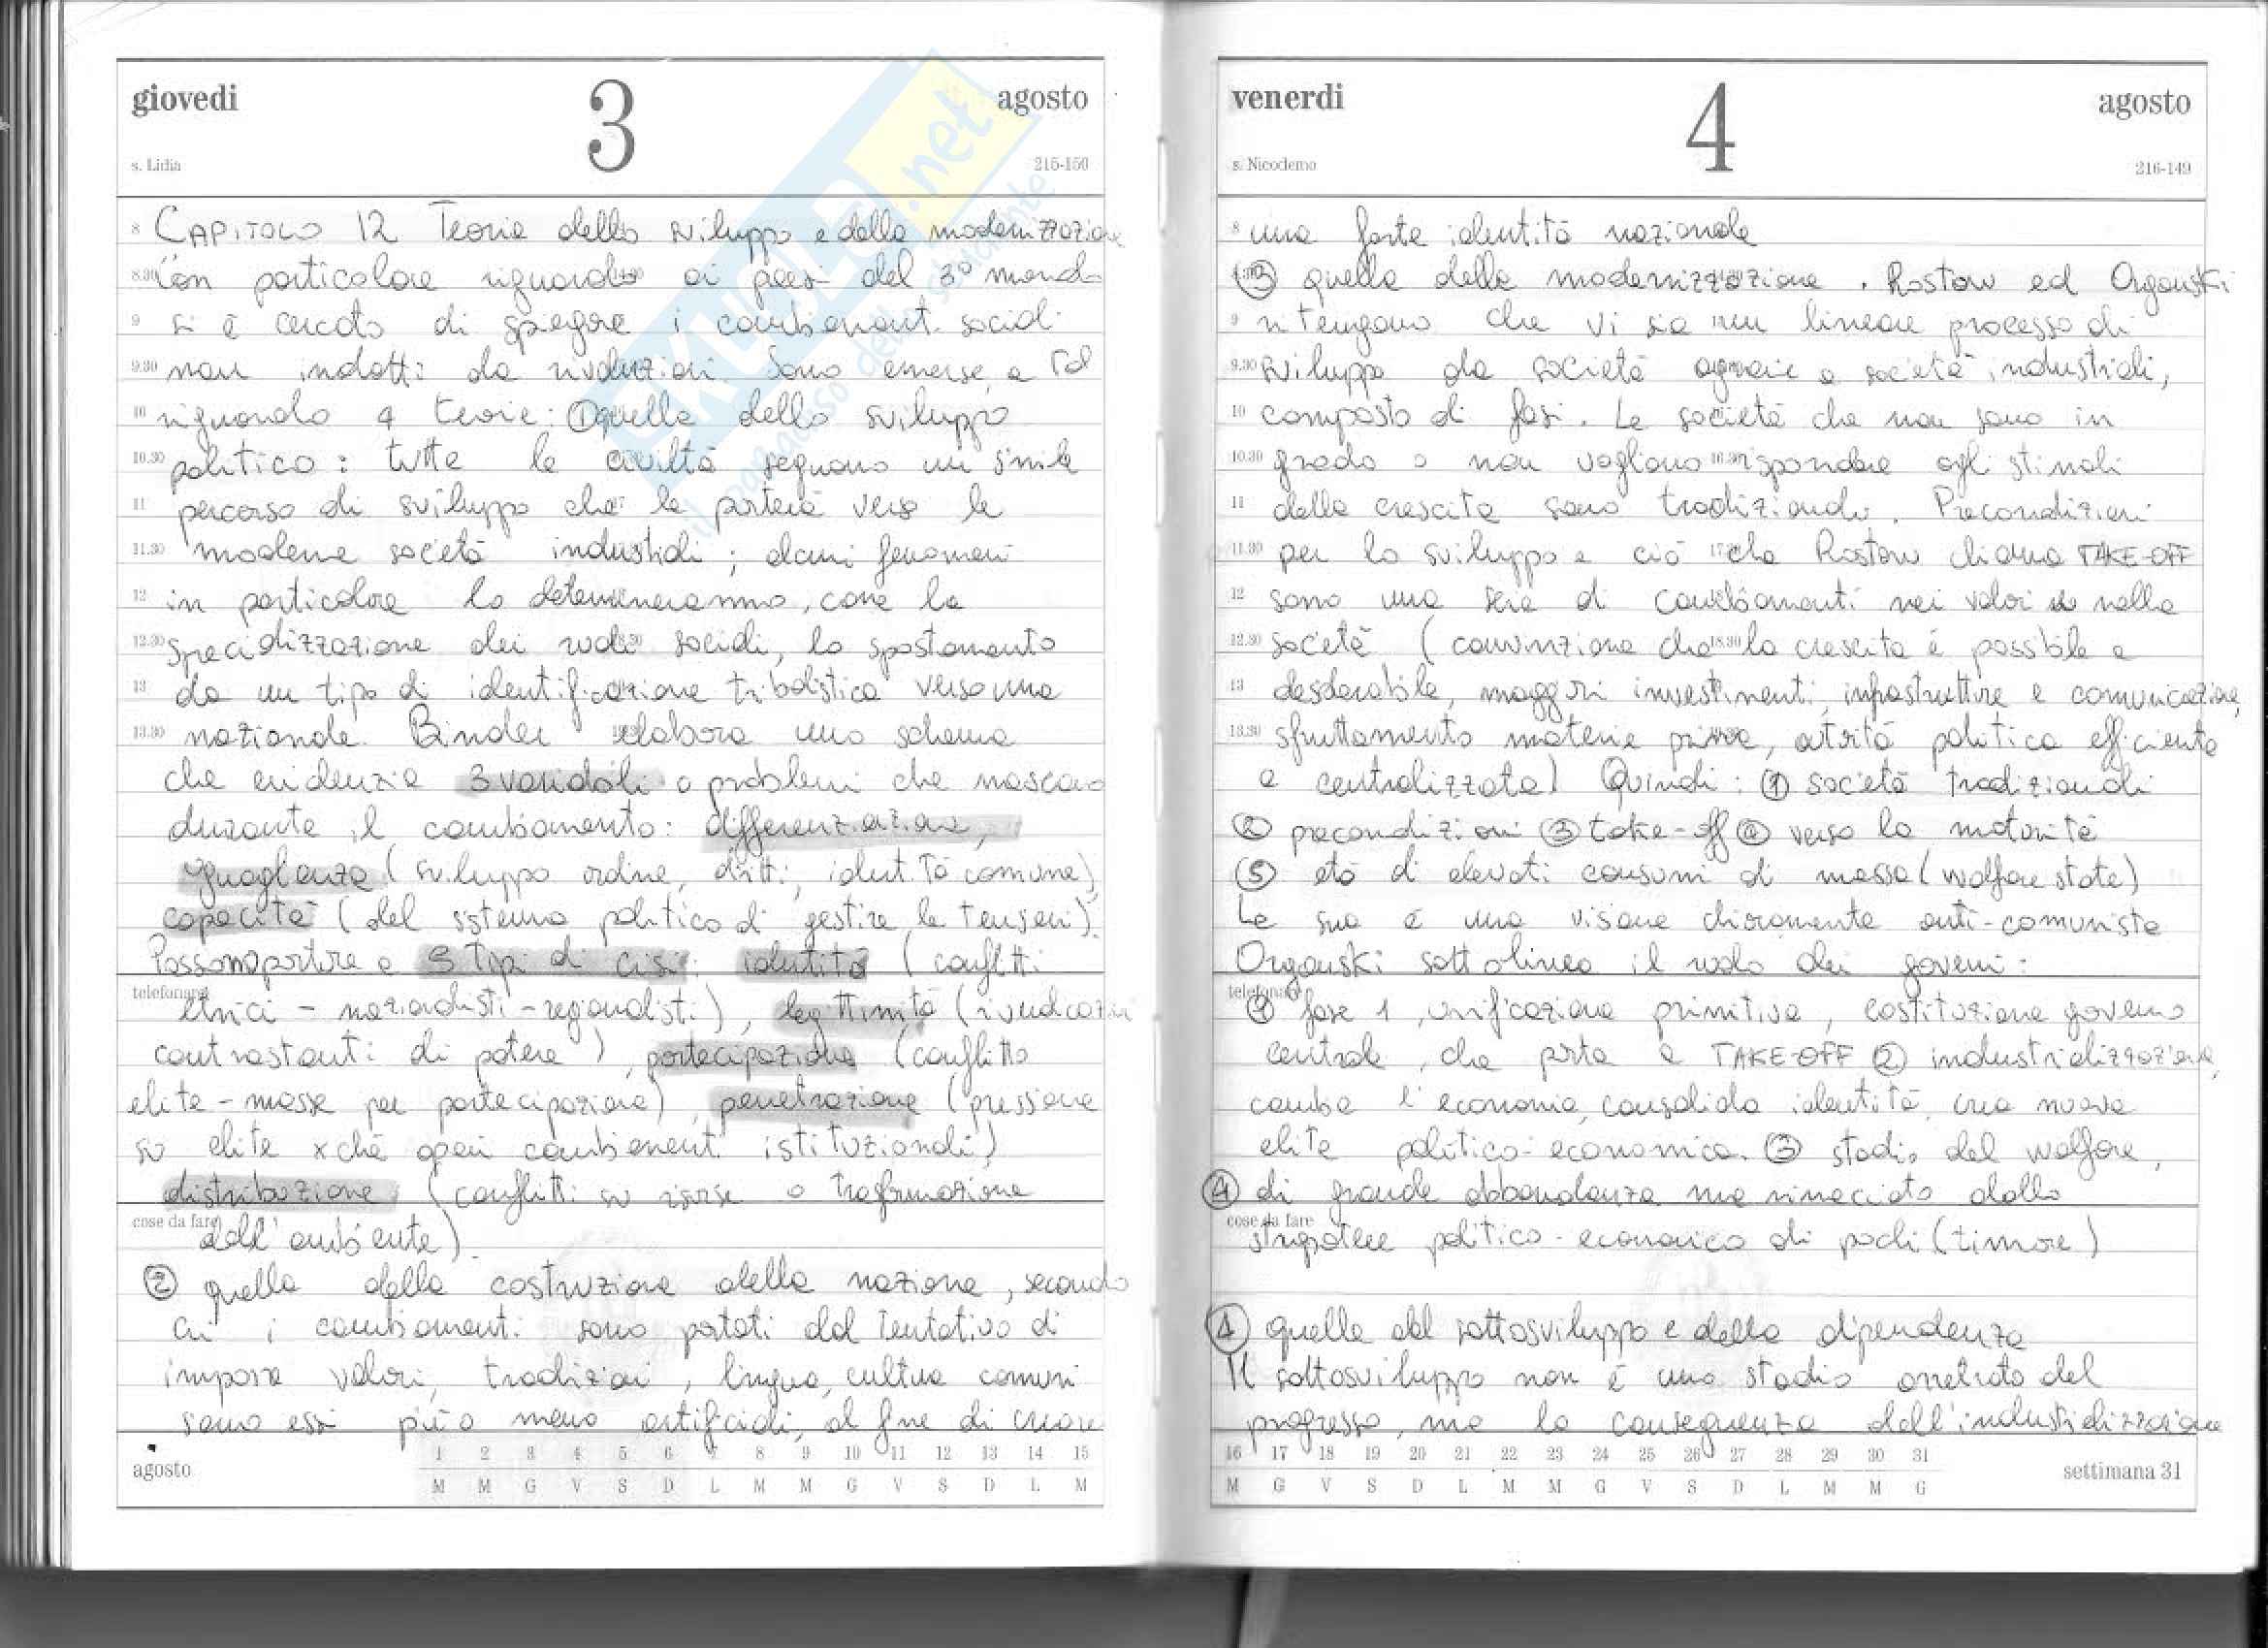 giovedì 3 agosto
s. Lidia 215-150
8 CAPITOLO 12 Teorie dello sviluppo e della modernizzazione
8.30 Con particolare riguardo ai paesi del 3° mondo
9 si è cercato di spiegare i cambiament. sociali
9.30 non indotti da rivoluzioni. Sono emerse, a tal
10 riguardo 4 teorie: ① quella dello sviluppo
10.30 politico: tutte le civiltà seguono un simile
11 percorso di sviluppo che le porterà verso le
11.30 moderne società industriali; alcuni fenomeni
12 in particolare lo determineranno, come la
12.30 specializzazione dei ruoli sociali, lo spostamento
13 da un tipo di identificazione tribalistica verso una
13.30 nazionale. Binder elabora uno schema
che evidenzia 3 variabili o problemi che nascono
durante il cambiamento: differenziazione,
uguaglianza (sviluppo ordine, diritti, identità comune),
capacità (del sistema politico di gestire le tensioni).
Possono portare a 5 tipi di crisi: identità (conflitti
telefonare
etnici - nazionalisti - regionalisti), legittimità (rivendicazioni
contrastanti di potere), partecipazione (conflitto
elite - masse per partecipazione), penetrazione (pressione
su elite xchè operi cambiamenti istituzionali)
distribuzione (conflitti su risorse o trasformazione
cose da fare
dell'ambiente).
② quella della costruzione della nazione, secondo
cui i cambiamenti sono portati dal tentativo di
imporre valori, tradizioni, lingua, cultura comuni
siano essi più o meno artificiali, al fine di creare
agosto 1 2 3 4 5 6 7 8 9 10 11 12 13 14 15
M M G V S D L M M G V S D L M
venerdì 4 agosto
s. Nicodemo 216-149
8 una forte identità nazionale
8.30 ③ quella della modernizzazione. Rostow ed Organski
9 ritengono che vi sia un lineare processo di
9.30 sviluppo da società agrarie a società industriali,
10 composto di fasi. Le società che non sono in
10.30 grado o non vogliono rispondere agli stimoli
11 della crescita sono tradizionali. Precondizioni
11.30 per lo sviluppo e ciò che Rostow chiama TAKE-OFF
12 sono una serie di cambiamenti nei valori e nella
12.30 società (convinzione che la crescita è possibile e
13 desiderabile, maggiori investimenti, infrastrutture e comunicazione,
13.30 sfruttamento materie prime, autorità politica efficiente
e centralizzata) Quindi: ① società tradizionali
② precondizioni ③ take-off ④ verso la maturità
⑤ età di elevati consumi di massa (welfare state)
La sua è una visione chiaramente anti-comunista
Organski sottolinea il ruolo dei governi:
telefonare
① fase 1, unificazione primitiva, costituzione governo
centrale, che porta a TAKE-OFF ② industrializzazione,
cambia l'economia, consolida identità, crea nuova
elite politico-economica. ③ stadio del welfare,
④ di grande abbondanza ma minacciato dallo
cose da fare
strapotere politico-economico di pochi (timore)
④ quella del sottosviluppo e della dipendenza
Il sottosviluppo non è uno stadio arretrato del
progresso, ma la conseguenza dell'industrializzazione
16 17 18 19 20 21 22 23 24 25 26 27 28 29 30 31
M G V S D L M M G V S D L M M G
settimana 31
SKUOLA.net
il paradiso dello studente